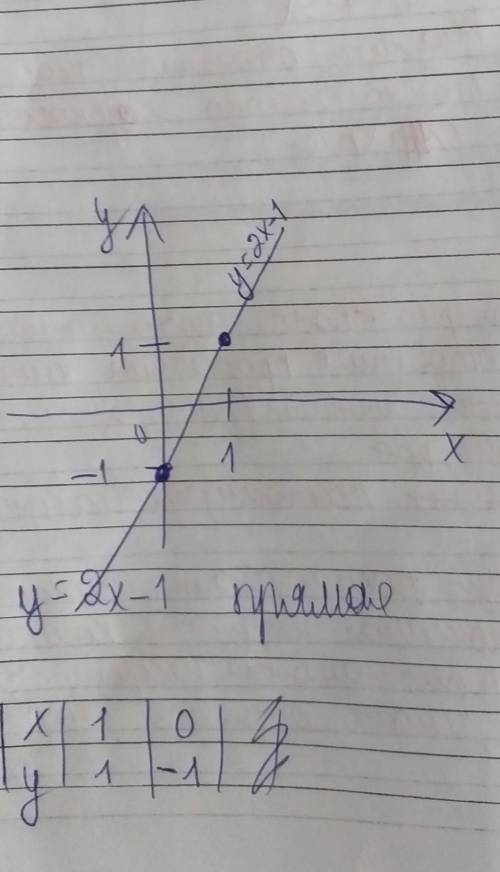 y
y=2x-1
1
0
-1 1 x
y=2x-1 прямая
x 1 0
y 1 -1